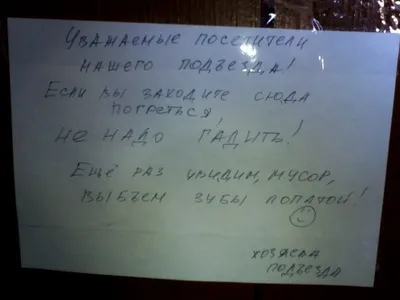 Уважаемые посетители
нашего подъезда!
Если вы заходите сюда
погреться,
не надо гадить!
Ещё раз увидим, мусор,
выбъем зубы лопатой!
хозяева
подъезда